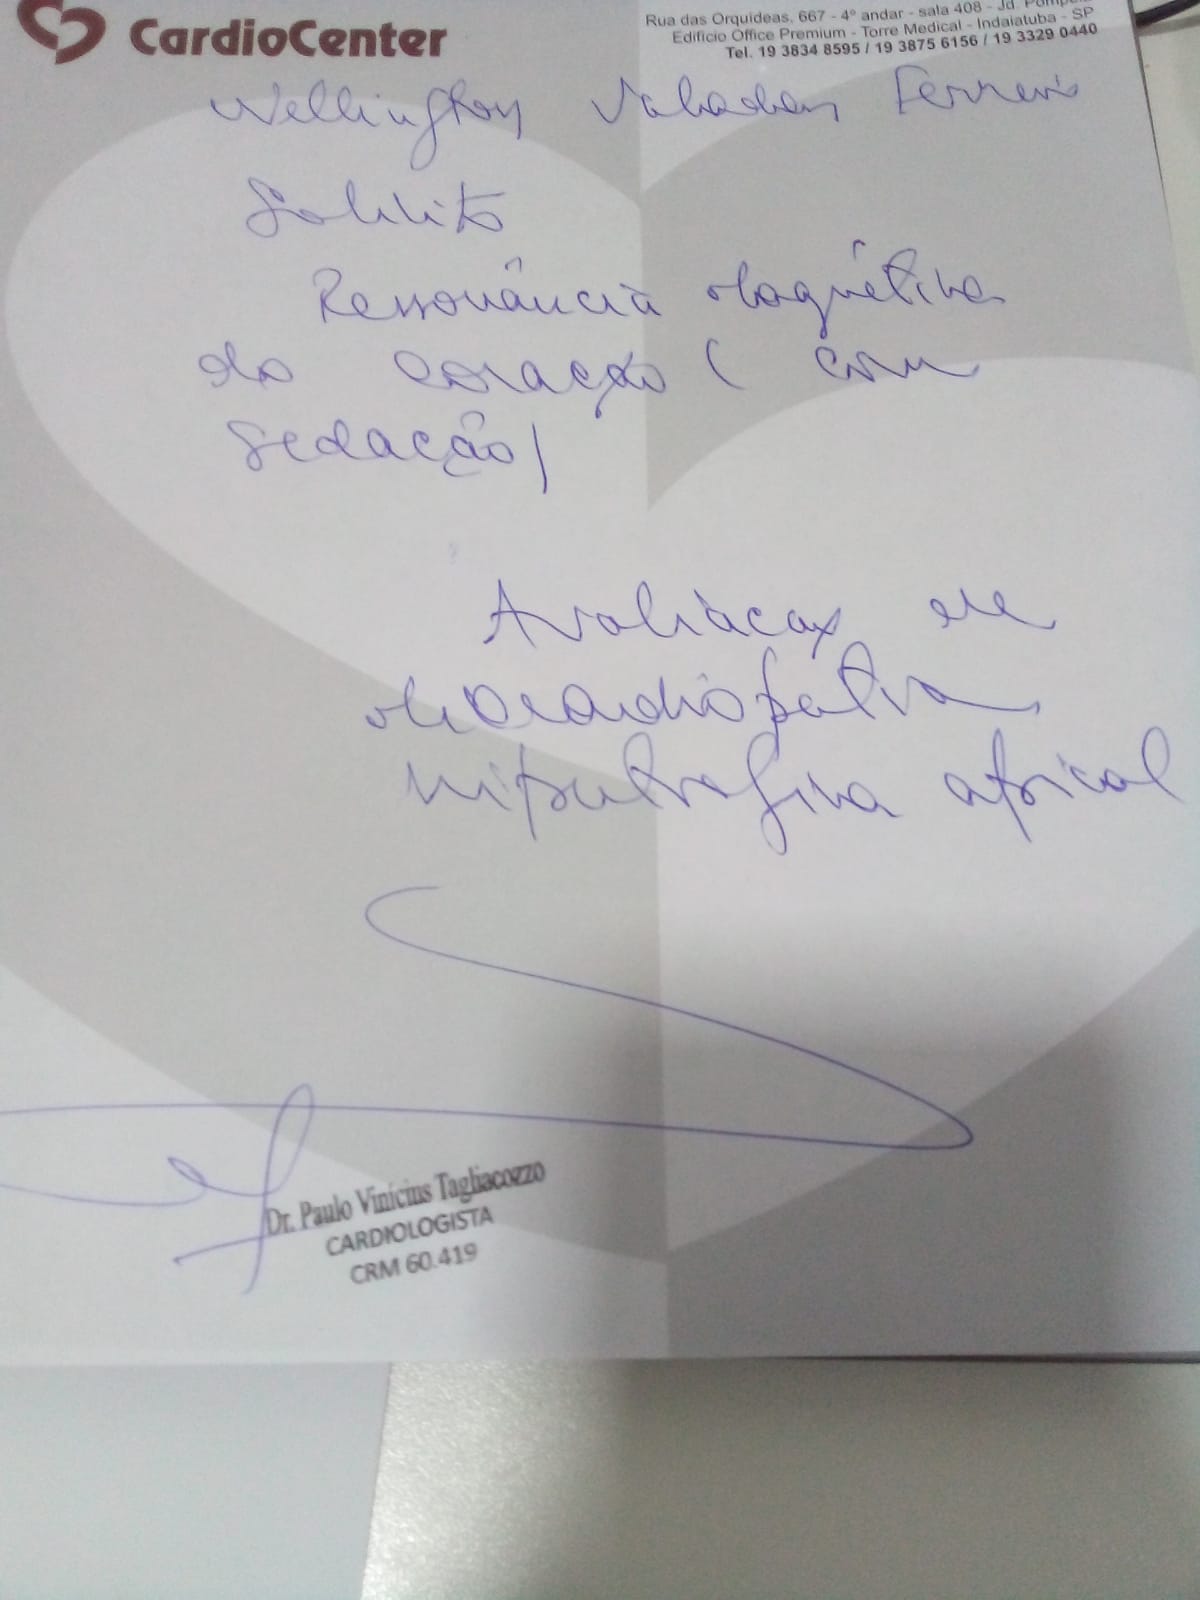 CardioCenter
Rua das Orquídeas, 667 - 4º andar - sala 408 - Jd. Pompéia
Edifício Office Premium - Torre Medical - Indaiatuba - SP
Tel. 19 3834 8595 / 19 3875 6156 / 19 3329 0440
Wellington Ferreira
Solicito
Ressonância Magnética
do coração ( com
sedação)
Avaliação de
Miocardiopatia
hipertrófica apical
Dr. Paulo Vinícius Tagliacozzo
CARDIOLOGISTA
CRM 60.419